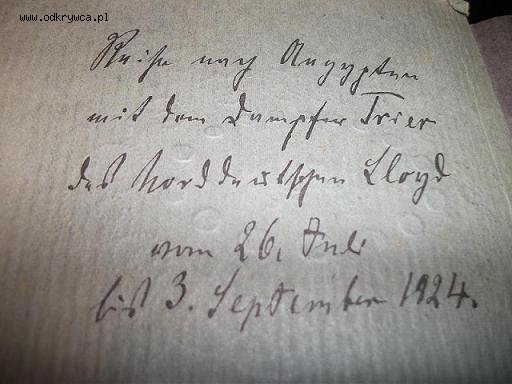 www.odkrywca.pl
Reise nach Aegypten
mit dem Dampfer Trier
des Norddeutschen Lloyd
vom 26. Juli
bis 3. September 1924.